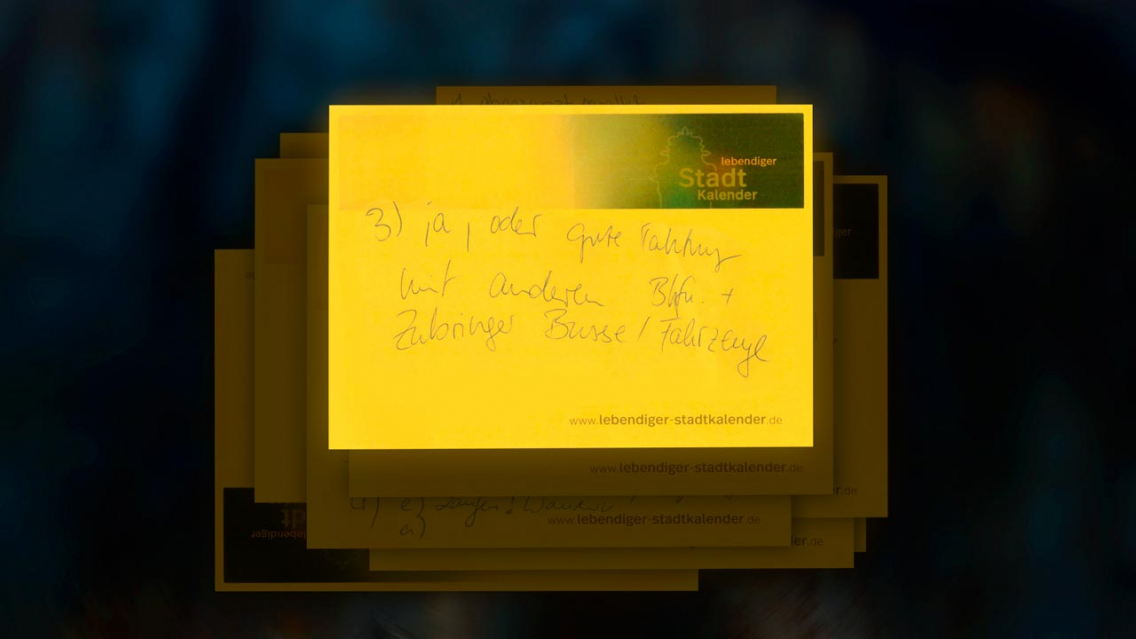 lebendiger
Stadt
Kalender
3) ja, oder gute
mit anderen Bhfn. +
Zubringer Busse / Fahrzeuge
www.lebendiger-stadtkalender.de
www.lebendiger-stadtkalender.de
www.lebendiger-stadtkalender.de